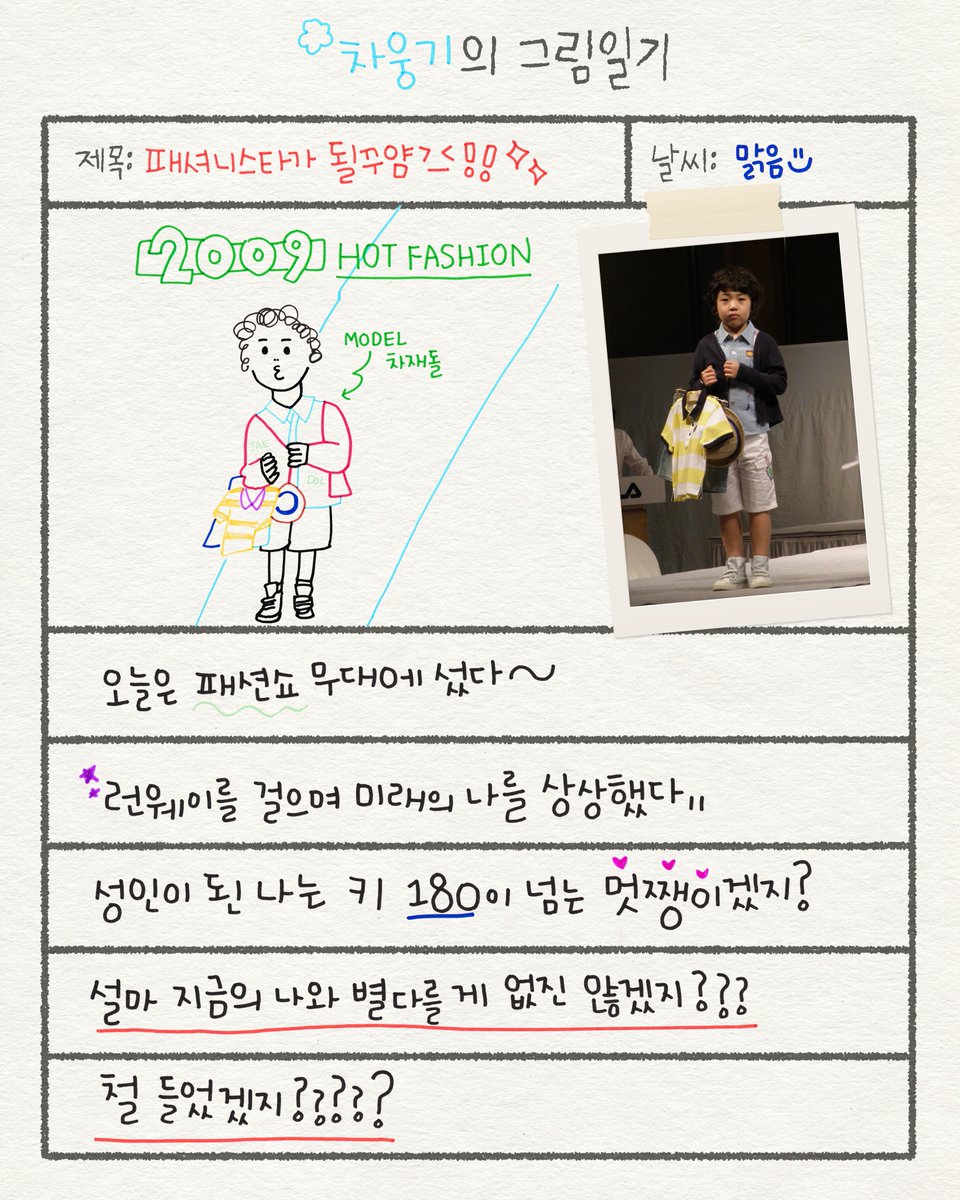 차웅기의 그림일기
제목: 패셔니스타가 될꾸얌ㄱㅅ!!
날씨: 맑음
2009 HOT FASHION
MODEL
차재돌
JAE
DOL
LA
오늘은 패션쇼 무대에 섰다~
런웨이를 걸으며 미래의 나를 상상했다..
성인이 된 나는 키 180이 넘는 멋쨍이겠지?
설마 지금의 나와 별다를 게 없진 않겠지???
철 들었겠지?????